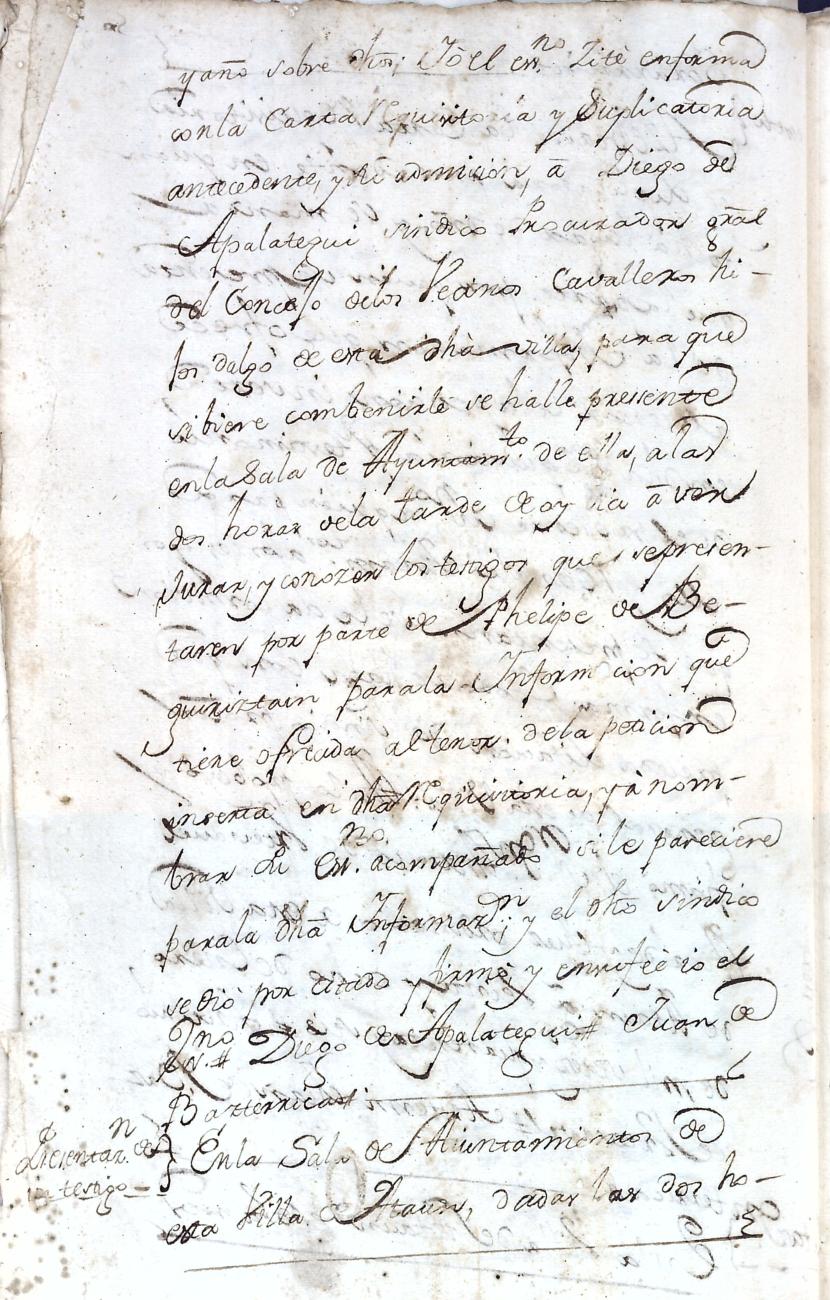 y año sobre dhos; Yò el esn.no Zitè enforma
conla Carta Requisitoria y Suplicatoria
antecedente, y su admision, à Diego de
Apalategui sindico Procurador gral
del Concejo delos Vecinos Cavalleros hi-
jos dalgo de esta dha villa, para que
si biere combenirle se halle pressente
enla Sala de Ayuntam.to de ella, alas
dos horas dela tarde de oy dia à ver
Jurar, y conozer los testigos que sepresen-
taren por parte de Phelipe de Be-
guiriztain parala Informacion que
tiene ofrecida altenor dela peticion
inserta en dha Requisitoria, y à nom-
brar su Esn.no acompañado si le pareciere
parala dha Informaz.n; y el dho sindico
se diò por citado y firmò, y enrufeè io el
Esn.no # Diego de Apalategui # Juan de
Bazterrica #
Presentaz.n de
un testigo
Enla Sala de Aiuntamientos de
esta Villa de Ataun, dadas las dos ho-